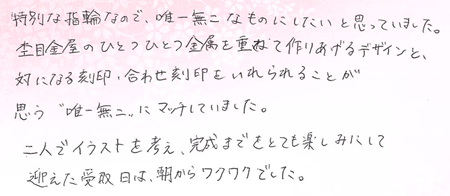 特別な指輪なので、唯一無二なものにしたいと思っていました。
杢目金屋のひとつひとつ金属を重ねて作りあげるデザインと、
対になる刻印・合わせ刻印をいれられることが
思う"唯一無二"にマッチしていました。
二人でイラストを考え、完成までをとても楽しみにして
迎えた受取日は、朝からワクワクでした。